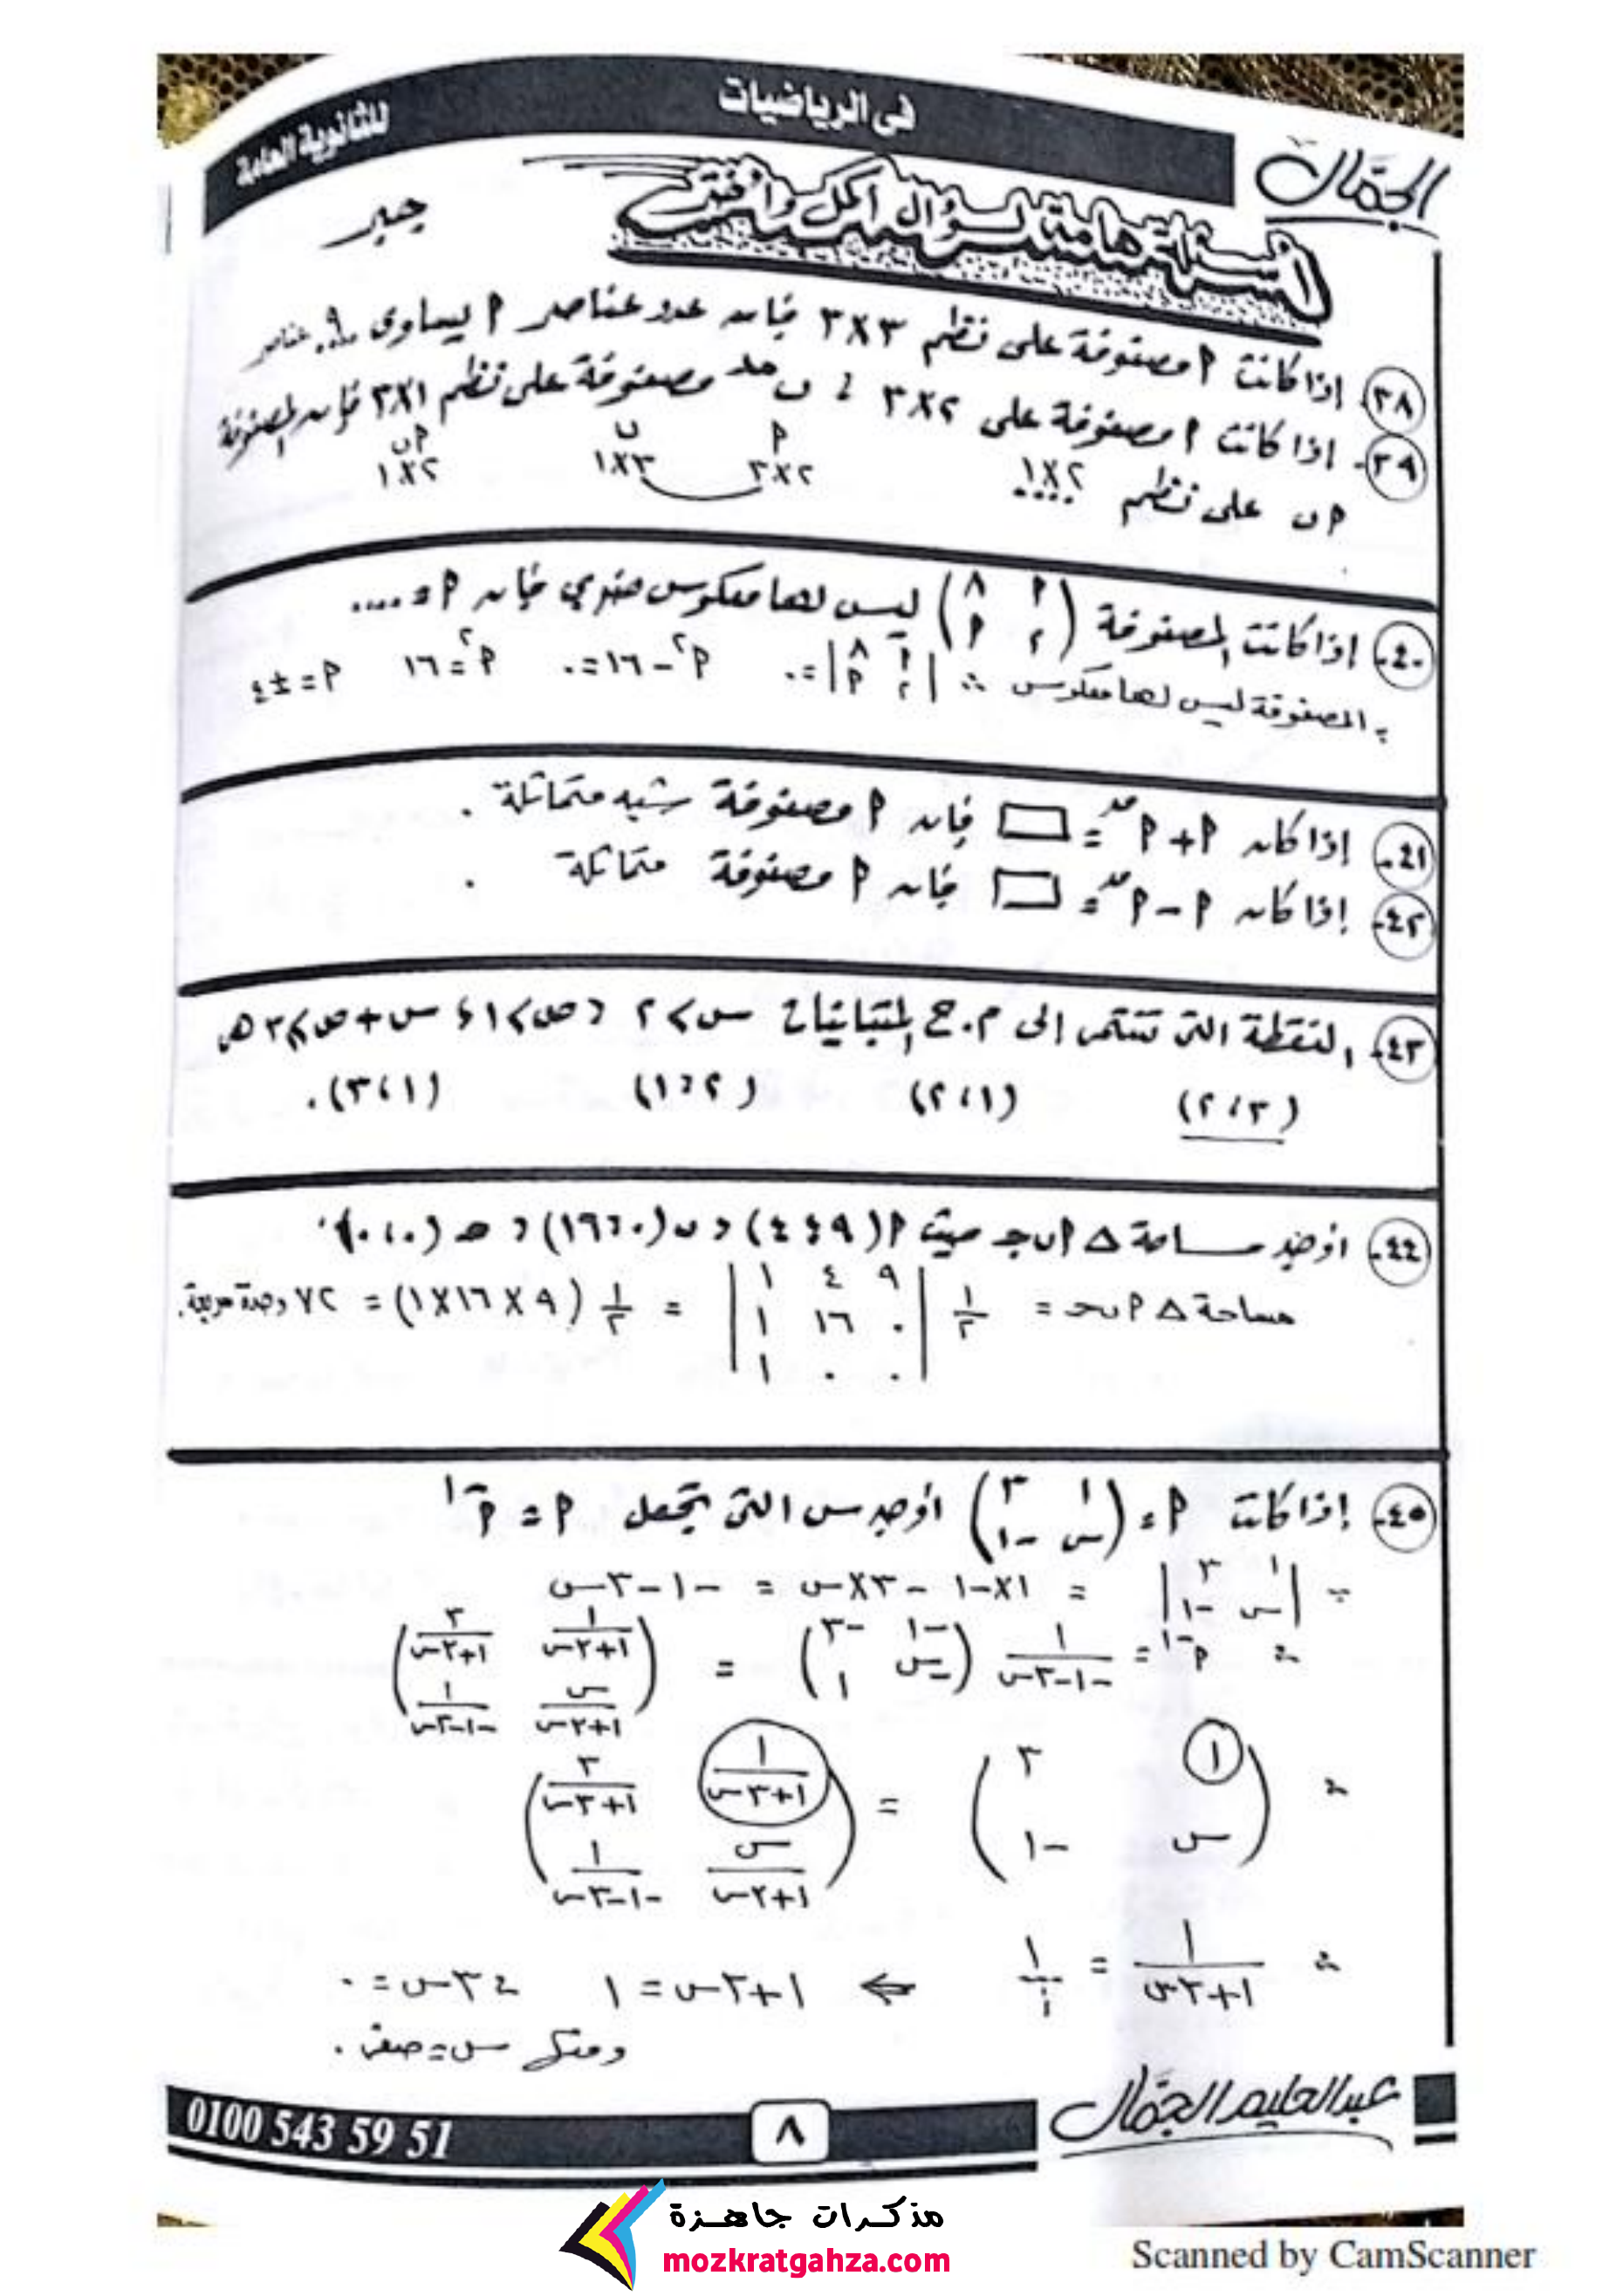 الجمّال
في الرياضيات
للثانوية العامة
جبر
أسئلة هامة لسؤال أكمل وأختر
٣٨- إذا كانت P مصفوفة على نظم ٣×٣ فإن عدد عناصر P يساوى ..٩.. عناصر
٣٩- إذا كانت P مصفوفة على ٢×٣ ، ب مصفوفة على نظم ٣×١ فإن المصفوفة
P ب على نظم ..٢×١..
P ٢×٣ ب ٣×١ P ب ٢×١
٤٠- إذا كانت المصفوفة (P ٨ / ٢ P) ليس لها معكوس ضربي فإن P = ....
∵ المصفوفة ليس لها معكوس ∴ |P ٨ / ٢ P| = ٠ P² - ١٦ = ٠ P² = ١٦ P = ± ٤
٤١- إذا كان P + P مد = □ فإن P مصفوفة شبه متماثلة .
٤٢- إذا كان P - P مد = □ فإن P مصفوفة متماثلة .
٤٣- النقطة التى تنتمى إلى م.ح المتباينات س > ٢ ، ص > ١ ، س + ص ≥ ٣ هى
(٣ ، ٢) (١ ، ٢) (٢ ، ١) (١ ، ٣) .
٤٤- أوجد مساحة Δ P ب جـ حيث P (٩ ، ٤) ، ب (٠ ، ١٦) ، حـ (٠ ، ٠) .
مساحة Δ P ب حـ = ١/٢ |٩ ٤ ١ / ٠ ١٦ ١ / ٠ ٠ ١| = ١/٢ (٩ × ١٦ × ١) = ٧٢ وحدة مربعة.
٤٥- إذا كانت P = (١ ٣ / س -١) أوجد س التى تجعل P = P⁻¹
∵ |١ ٣ / س -١| = ١×-١ - ٣×س = -١-٣س
∴ P⁻¹ = ١/(-١-٣س) (-١ -٣ / -س ١) = (١/(١+٣س) ٣/(١+٣س) / س/(١+٣س) ١/(-١-٣س))
∴ (١ ٣ / س -١) = (١/(١+٣س) ٣/(١+٣س) / س/(١+٣س) ١/(-١-٣س))
∴ ١/(١+٣س) = ١/١ ⇐ ١+٣س = ١ ∴ ٣س = ٠
ومنها س = صفر .
عبد الحليم الجمّال
٨
0100 543 59 51
مذكرات جاهزة
mozkratgahza.com
Scanned by CamScanner